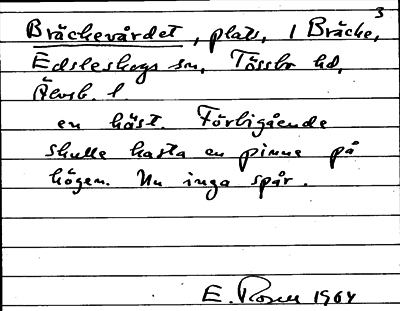 3
Bräckevårdet, plats, i Bräcke,
Edsleskogs sn, Tössbo hd,
Älvsb. l.
en häst. Förbigående
skulle kasta en pinne på
högen. Nu inga spår.
E. Rosell 1964